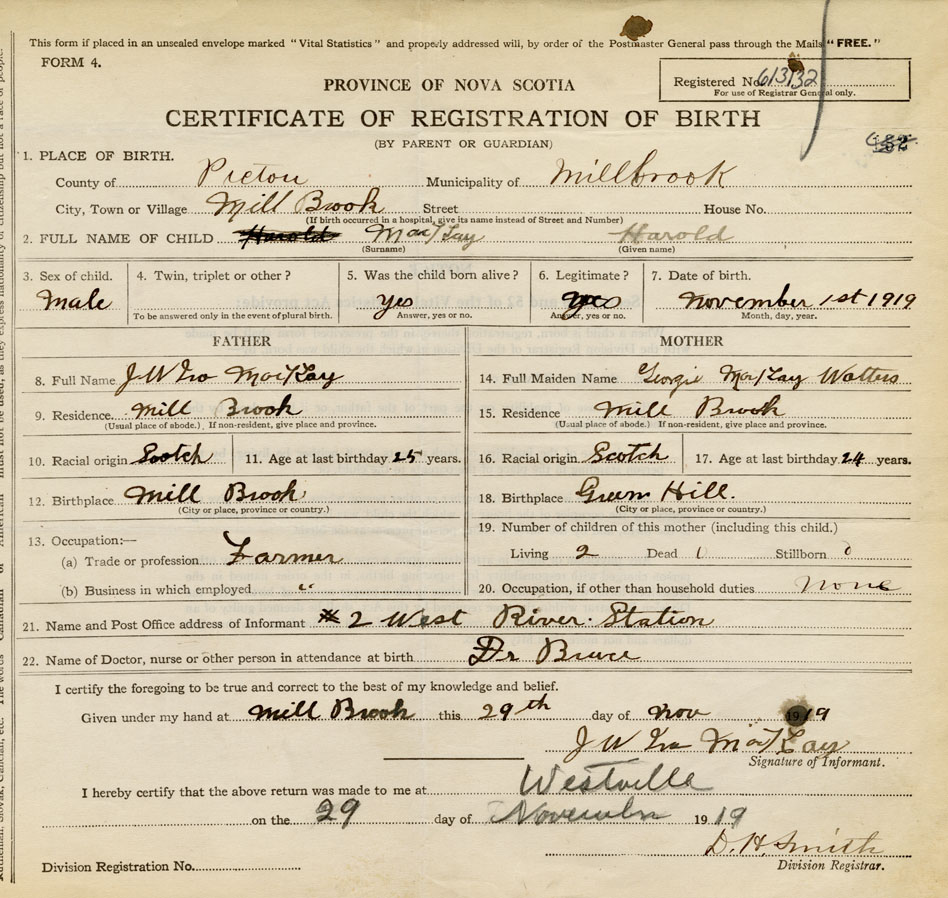 This form if placed in an unsealed envelope marked "Vital Statistics" and properly addressed will, by order of the Postmaster General pass through the Mails "FREE."
FORM 4.
Registered No. 613132
For use of Registrar General only.
PROVINCE OF NOVA SCOTIA
CERTIFICATE OF REGISTRATION OF BIRTH
(BY PARENT OR GUARDIAN)
1. PLACE OF BIRTH.
County of Pictou Municipality of Millbrook
City, Town or Village Mill Brook Street House No.
(If birth occurred in a hospital, give its name instead of Street and Number)
2. FULL NAME OF CHILD Harold MacKay Harold
(Surname) (Given name)
3. Sex of child. 4. Twin, triplet or other? 5. Was the child born alive? 6. Legitimate? 7. Date of birth.
Male yes yes November 1st 1919
To be answered only in the event of plural birth. Answer, yes or no. Answer, yes or no. Month, day, year.
FATHER MOTHER
8. Full Name J W Ira MacKay 14. Full Maiden Name Georgie MacKay Watters
9. Residence. Mill Brook 15. Residence Mill Brook
(Usual place of abode.) If non-resident, give place and province. (Usual place of abode.) If non-resident, give place and province.
10. Racial origin Scotch 11. Age at last birthday 25 years. 16. Racial origin Scotch 17. Age at last birthday 24 years.
12. Birthplace Mill Brook 18. Birthplace Green Hill.
(City or place, province or country.) (City or place, province or country.)
13. Occupation:— 19. Number of children of this mother (including this child.)
(a) Trade or profession Farmer Living 2 Dead 1 Stillborn 0
(b) Business in which employed " 20. Occupation, if other than household duties none
21. Name and Post Office address of Informant # 2 West River Station
22. Name of Doctor, nurse or other person in attendance at birth Dr Bruce
I certify the foregoing to be true and correct to the best of my knowledge and belief.
Given under my hand at Mill Brook this 29th day of Nov 1919
J W Ira MacKay
Signature of Informant.
I hereby certify that the above return was made to me at Westville
on the 29 day of November 1919
D. H. Smith
Division Registration No. Division Registrar.